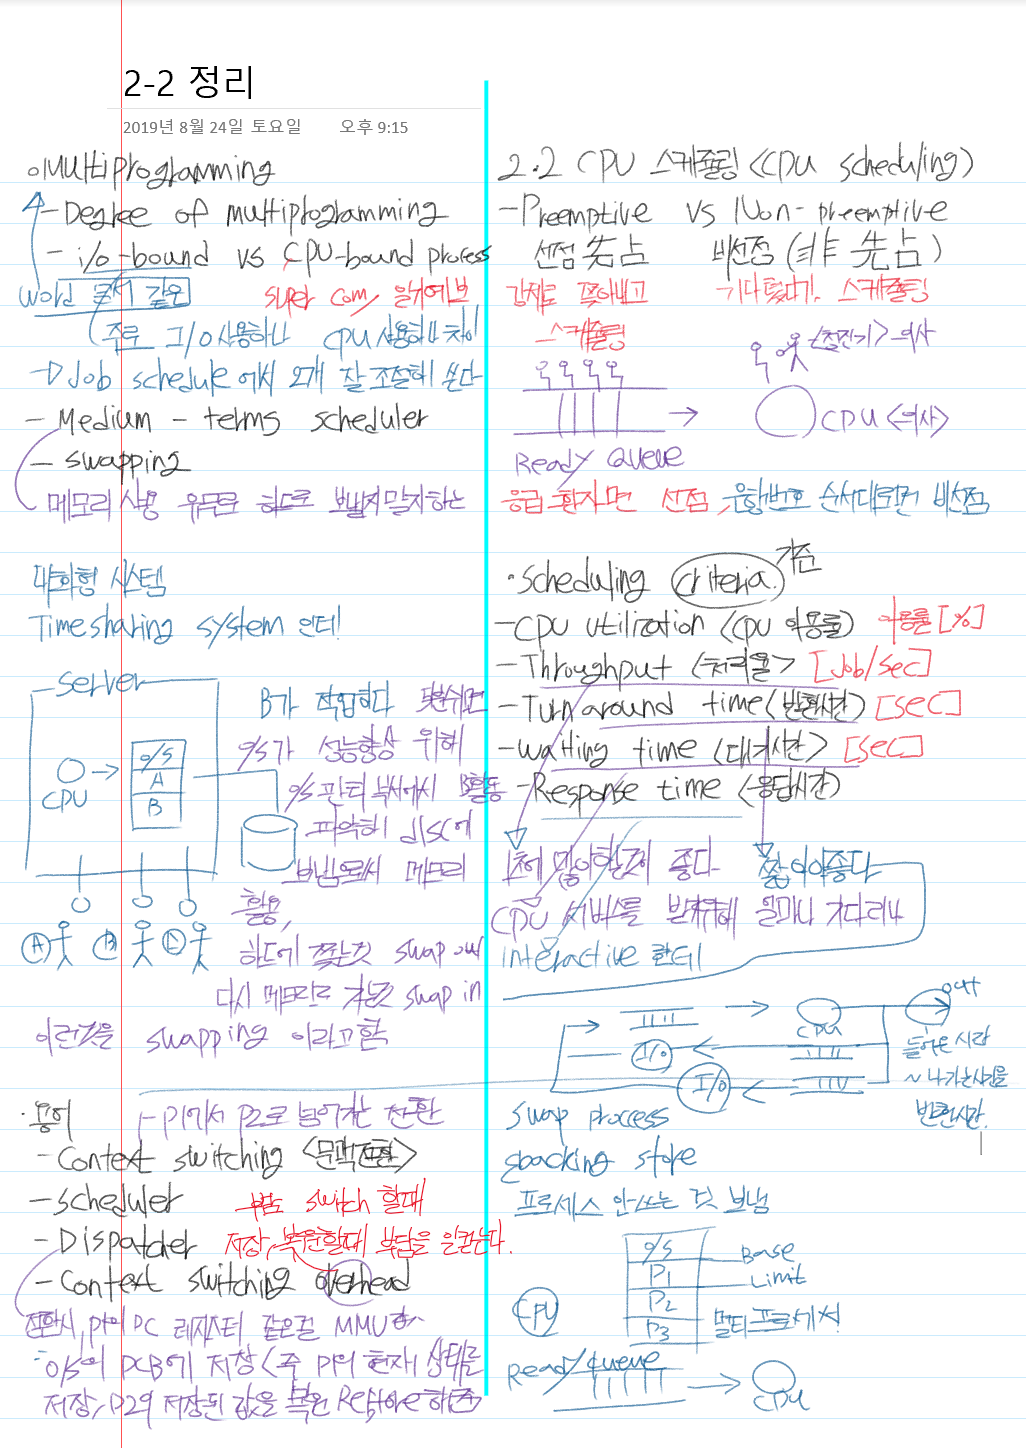 2-2 정리
2019년 8월 24일 토요일 오후 9:15
Multiprogramming
- Degree of multiprogramming
- i/o-bound vs CPU-bound process
word 문서 같은 super com, 일기예보
주로 I/O 사용하나 CPU 사용하나 차이
Job schedule에서 2개 잘 조절해 쓴다
- Medium - terms scheduler
- swapping
메모리 사용 유무로 하드로 보낼지 말지하는
대화형 시스템
Timesharing system 인터!
server
o/s
A
B
CPU
B가 작업하다 푹쉬면
o/s가 성능향상 위해
o/s 판단 부서에서 B활동
파악해 disc에
보냄으로써 메모리
활용,
하드에 쫓는것 swap out
다시 메모리로 가는것 swap in
A B C
이런것을 swapping 이라고함
· 용어
P1에서 P2로 넘어가는 전환
- Context switching <문맥전환>
- Scheduler
switch 할때
- Dispatcher 저장, 복원할때 부담을 일컫는다.
- Context switching overhead
전환시, P1의 PC 레지스터 같은걸 MMU
o/s의 PCB에 저장 (즉 P1의 현재 상태를
저장, P2의 저장된 값을 복원 Restore 하는
2.2 CPU 스케줄링 <CPU scheduling>
- Preemptive vs Non-preemptive
선점 先占 비선점 (非 先占)
강제로 쫓아내고 기다렸다가! 스케줄링
스케줄링
<청진기> 의사
CPU <의사>
Ready Queue
응급 환자면 선점, 은행번호 순서대로면 비선점
· Scheduling criteria 기준
- CPU utilization (CPU 이용률) 이용률 [%]
- Throughput <처리율> [Job/sec]
- Turnaround time (반환시간) [sec]
- Waiting time <대기시간> [sec]
- Response time <응답시간>
1초에 많이할수록 좋다 짧아야좋다
CPU 서비스를 받기위해 얼마나 기다리나
interactive 환경
CPU
out
I/O
I/O
들어온 시간
~ 나가는시간을
반환시간.
Swap process
backing store
프로세스 안쓰는 것 보냄
o/s
P1
P2
P3
Base
Limit
CPU
멀티프로세서
Ready queue
CPU